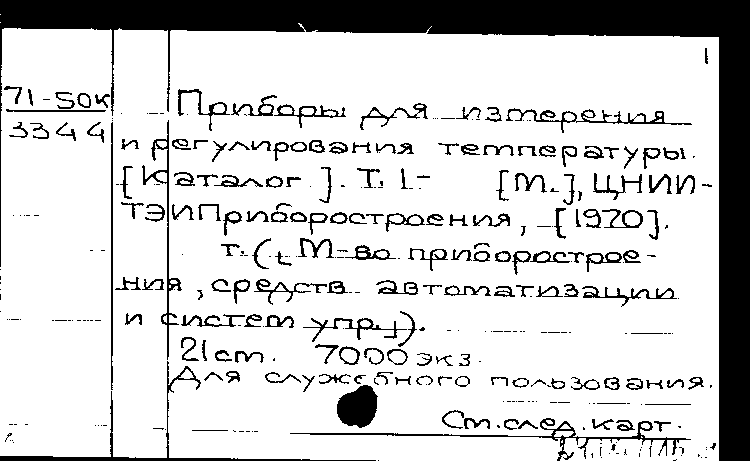 1
71-50к Приборы для измерения
3344
и регулирования температуры.
[Каталог]. Т. 1- [М.], ЦНИИ-
ТЭИПриборостроения, [1970].
т. (М-во приборострое-
ния, средств автоматизации
и систем упр.).
21 cm. 7000 экз.
Для служебного пользования.
См. след. карт.